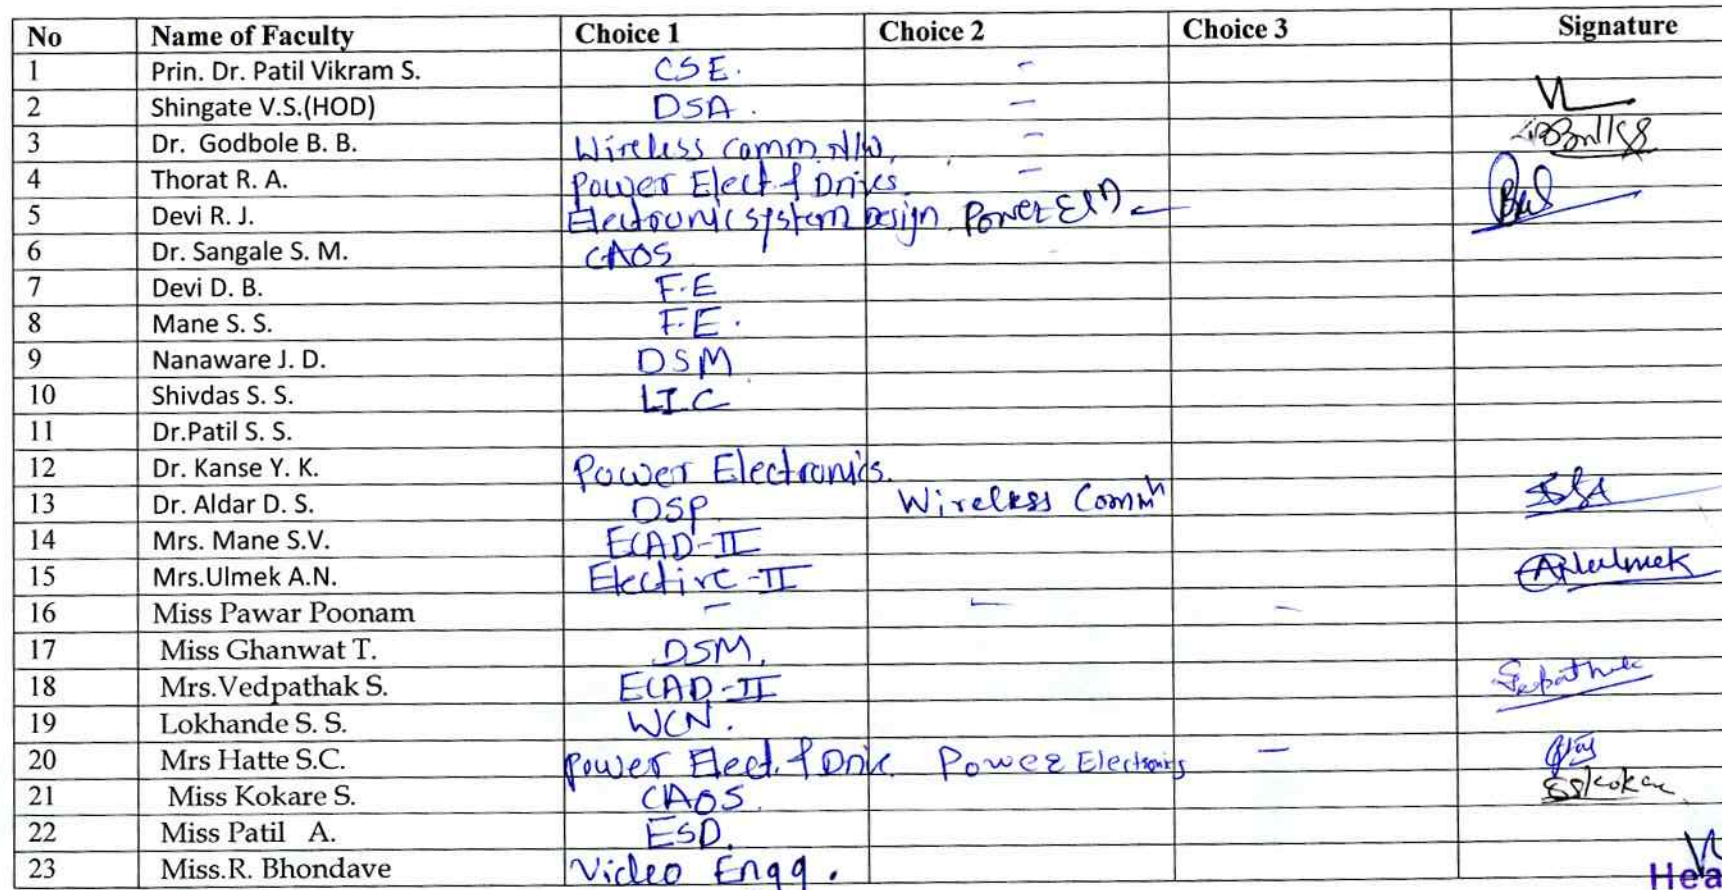 No Name of Faculty Choice 1 Choice 2 Choice 3 Signature
1 Prin. Dr. Patil Vikram S. CSE. -
2 Shingate V.S.(HOD) DSA. -
3 Dr. Godbole B. B. Wireless comm. N/W. -
4 Thorat R. A. Power Elect & Drives. -
5 Devi R. J. Electronic system Design Power -
6 Dr. Sangale S. M. CAOS
7 Devi D. B. F.E
8 Mane S. S. F.E.
9 Nanaware J. D. DSM
10 Shivdas S. S. LIC
11 Dr.Patil S. S.
12 Dr. Kanse Y. K. Power Electronics.
13 Dr. Aldar D. S. DSP Wireless Commn
14 Mrs. Mane S.V. ECAD-II
15 Mrs.Ulmek A.N. Elective-II
16 Miss Pawar Poonam - - -
17 Miss Ghanwat T. DSM.
18 Mrs.Vedpathak S. ECAD-II
19 Lokhande S. S. WCN.
20 Mrs Hatte S.C. Power Elect. & Drive Power Electronics -
21 Miss Kokare S. CAOS. SSKokare
22 Miss Patil A. ESD.
23 Miss.R. Bhondave Video Engg. Hea